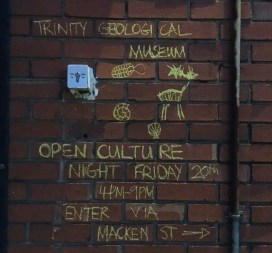 TRINITY GEOLOGICAL
MUSEUM
OPEN CULTURE
NIGHT FRIDAY 20th
4PM-9PM
ENTER VIA
MACKEN ST →